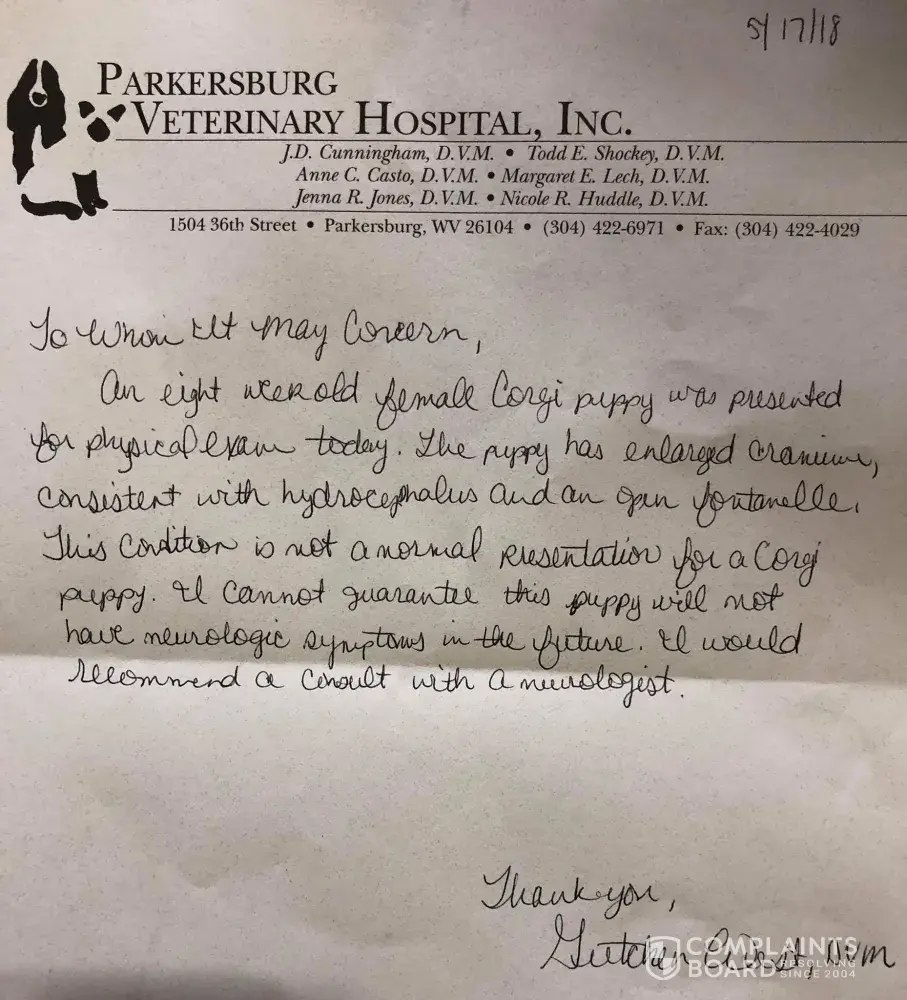 5/17/18
PARKERSBURG
VETERINARY HOSPITAL, INC.
J.D. Cunningham, D.V.M. • Todd E. Shockey, D.V.M.
Anne C. Casto, D.V.M. • Margaret E. Lech, D.V.M.
Jenna R. Jones, D.V.M. • Nicole R. Huddle, D.V.M.
1504 36th Street • Parkersburg, WV 26104 • (304) 422-6971 • Fax: (304) 422-4029
To Whom It May Concern,
An eight week old female Corgi puppy was presented
for physical exam today. The puppy has enlarged cranium,
consistent with hydrocephalus and an open fontanelle.
This condition is not a normal presentation for a Corgi
puppy. I cannot guarantee this puppy will not
have neurologic symptoms in the future. I would
recommend a consult with a neurologist.
Thank you,
Gretchen DVM
COMPLAINTS
BOARD RESOLVING
SINCE 2004